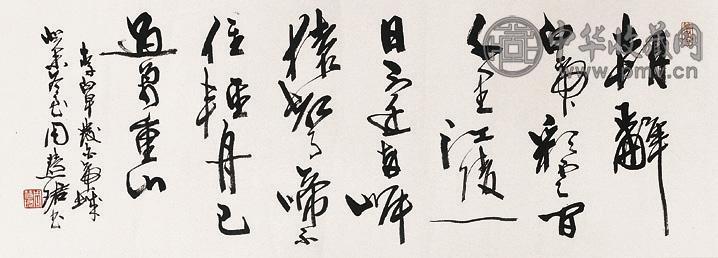 朝辭
白帝彩雲間
千里江陵一
日還兩岸
猿聲啼不
住輕舟已
過萬重山
李白早發白帝城
周慧珺書
中华收藏网